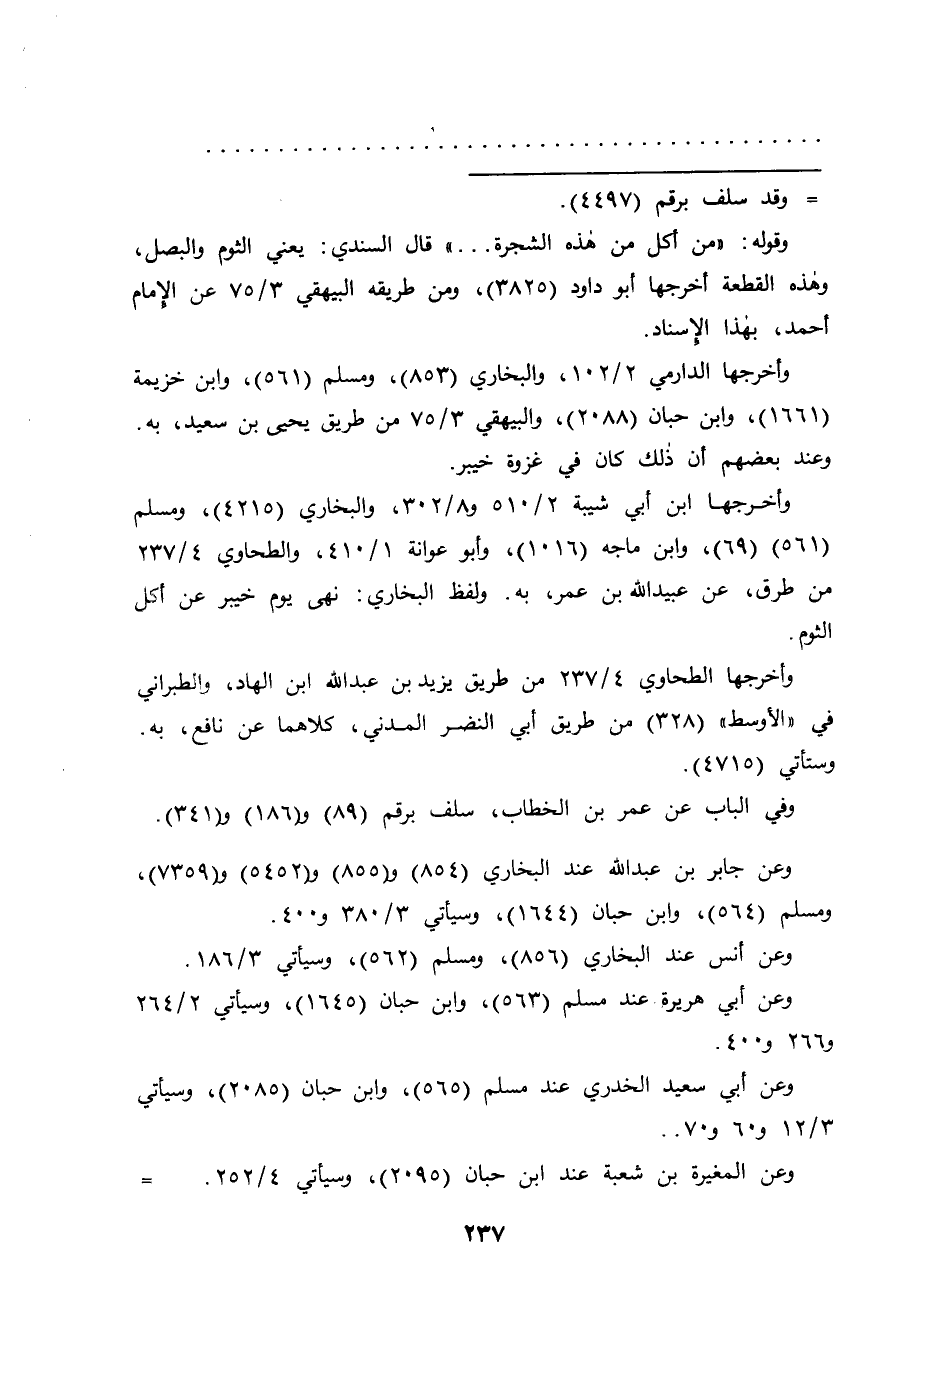 . . . . . . . . . . . . . . . . . . . . . . . . . . . . . . . . . . . . . . . . . . .
= وقد سلف برقم (٤٤٩٧).
وقوله: «من أكل من هٰذه الشجرة...» قال السندي: يعني الثوم والبصل،
وهٰذه القطعة أخرجها أبو داود (٣٨٢٥)، ومن طريقه البيهقي ٧٥/٣ عن الإمام
أحمد، بهٰذا الإسناد.
وأخرجها الدارمي ١٠٢/٢، والبخاري (٨٥٣)، ومسلم (٥٦١)، وابن خزيمة
(١٦٦١)، وابن حبان (٢٠٨٨)، والبيهقي ٧٥/٣ من طريق يحيى بن سعيد، به.
وعند بعضهم أن ذٰلك كان في غزوة خيبر.
وأخرجها ابن أبي شيبة ٥١٠/٢ و٣٠٢/٨، والبخاري (٤٢١٥)، ومسلم
(٥٦١) (٦٩)، وابن ماجه (١٠١٦)، وأبو عوانة ٤١٠/١، والطحاوي ٢٣٧/٤
من طرق، عن عبيدالله بن عمر، به. ولفظ البخاري: نهى يوم خيبر عن أكل
الثوم.
وأخرجها الطحاوي ٢٣٧/٤ من طريق يزيد بن عبدالله ابن الهاد، والطبراني
في «الأوسط» (٣٢٨) من طريق أبي النضر المدني، كلاهما عن نافع، به.
وستأتي (٤٧١٥).
وفي الباب عن عمر بن الخطاب، سلف برقم (٨٩) و(١٨٦) و(٣٤١).
وعن جابر بن عبدالله عند البخاري (٨٥٤) و(٨٥٥) و(٥٤٥٢) و(٧٣٥٩)،
ومسلم (٥٦٤)، وابن حبان (١٦٤٤)، وسيأتي ٣٨٠/٣ و٤٠٠.
وعن أنس عند البخاري (٨٥٦)، ومسلم (٥٦٢)، وسيأتي ١٨٦/٣.
وعن أبي هريرة عند مسلم (٥٦٣)، وابن حبان (١٦٤٥)، وسيأتي ٢٦٤/٢
و٢٦٦ و٤٠٠.
وعن أبي سعيد الخدري عند مسلم (٥٦٥)، وابن حبان (٢٠٨٥)، وسيأتي
١٢/٣ و٦٠ و٧٠..
وعن المغيرة بن شعبة عند ابن حبان (٢٠٩٥)، وسيأتي ٢٥٢/٤. =
٢٣٧